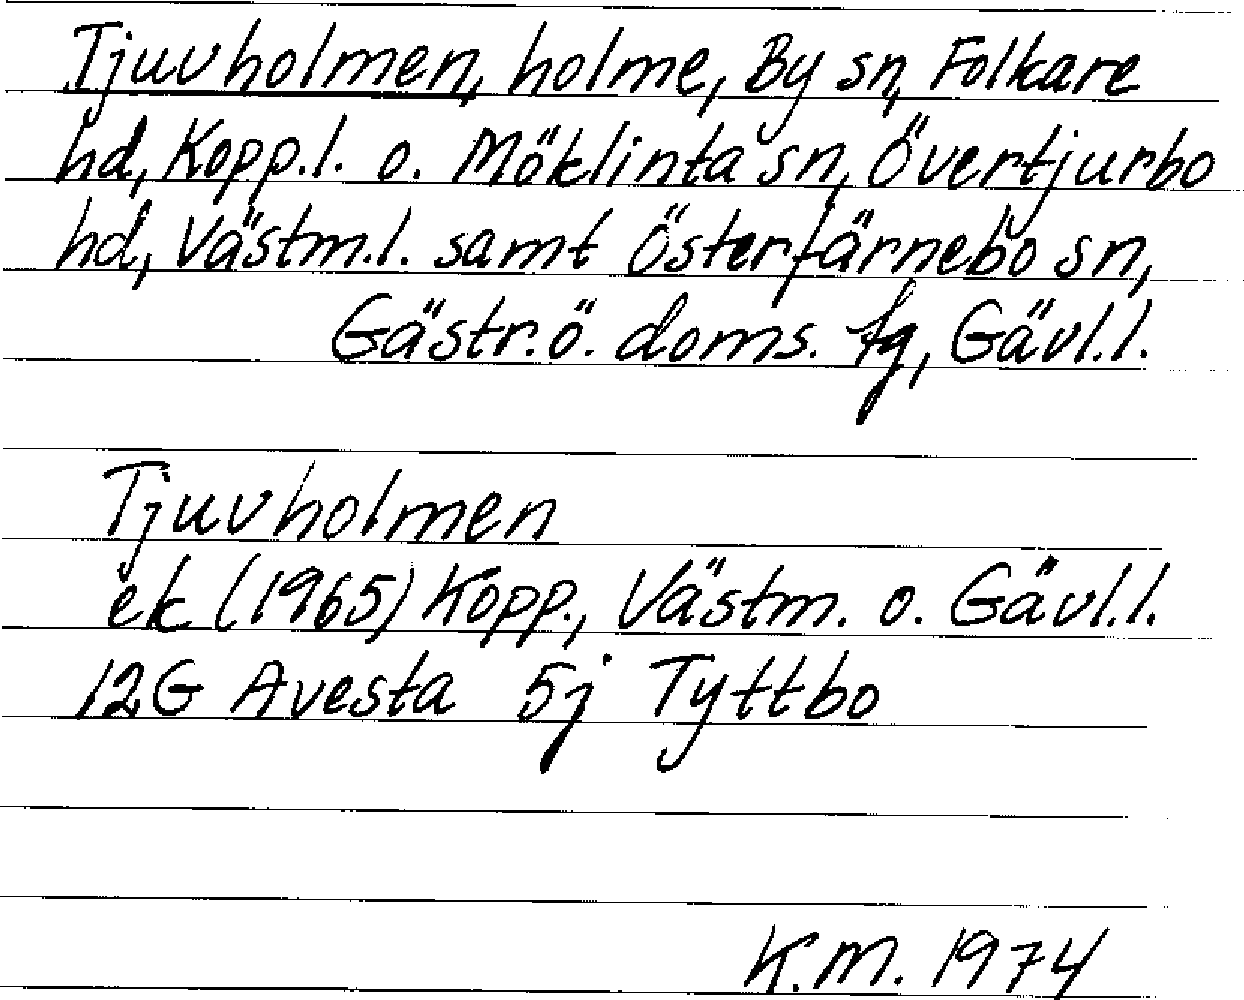 Tjuvholmen, holme, By sn, Folkare
hd, Kopp.l. o. Möklinta sn, Övertjurbo
hd, Västm.l. samt Österfärnebo sn,
Gästr.ö. doms. tg, Gävl.l.
Tjuvholmen
ek (1965) Kopp., Västm. o. Gävl.l.
12G Avesta 5j Tyttbo
K.M. 1974